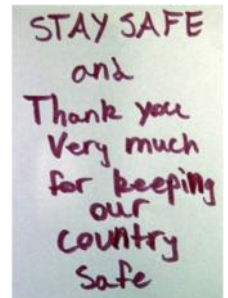 STAY SAFE
and
Thank you
Very much
for keeping
our
country
safe